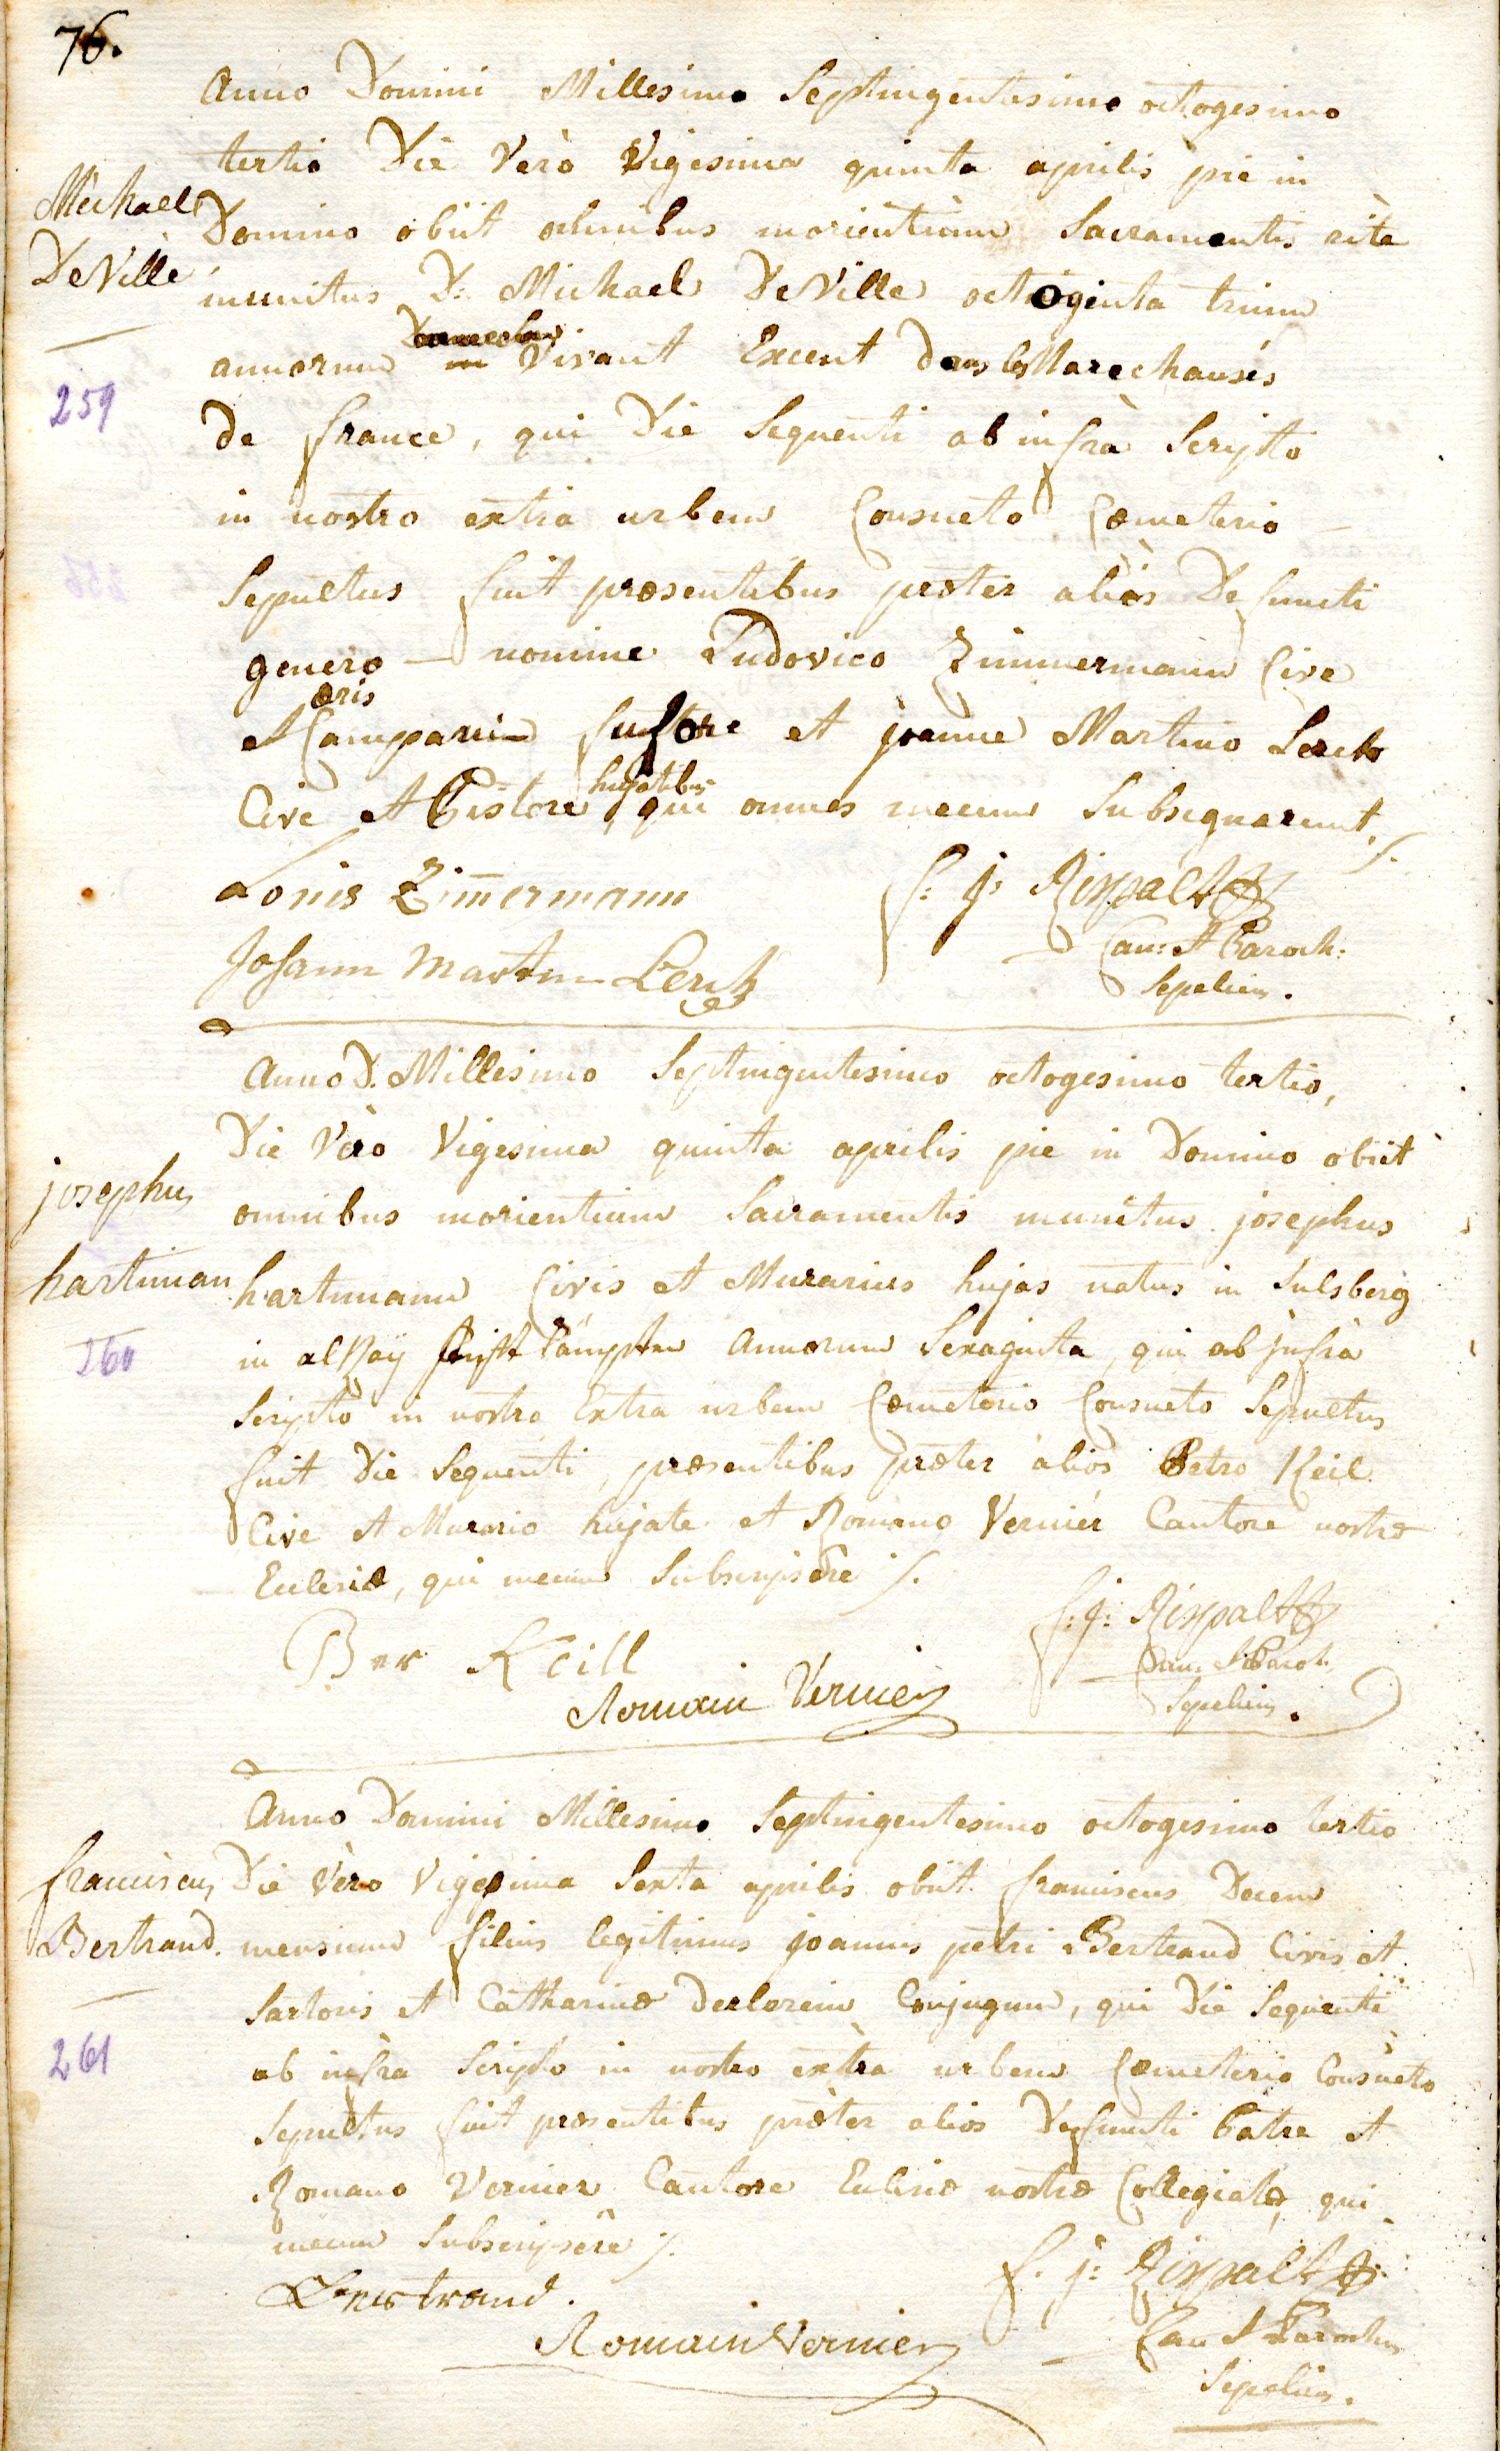 76.
Anno Domini Millesimo Septingentesimo octogesimo
tertio Die Verò Vigesima quinta aprilis pie in
Michael
Domino obiit omnibus morientium Sacramentis rite
DeVille
munitus D: Michael DeVille octoginta trium
annorum Vivant Exent dans les Marechausés
259
de france, qui Die Sequenti ab infrà Scripto
in nostro extra urbem Consueto Cœmeterio
Sepultus fuit præsentibus præter aliòs Defuncti
genero — nomine Ludovico Zimmermann Cive
æris
et Campani fusore et joanne Martino Lerch
hujatibus
Cive et Pistore, qui omnes mecum Subsignarunt ./.
Louis Zim̄ermann
f: j: Rixpalt
Can: et Paroch:
Johann Martin Lerch
Sepeliens.
Anno D. Millesimo Septingentesimo octogesimo tertio,
Die Vero Vigesima quinta aprilis pie in Domino obiit
josephus
omnibus morientium Sacramentis munitus josephus
hartman
hartmann Civis et Murarius hujas natus in Sulsberg
260
in Stifft Kämpten Annorum Sexaginta, qui ab jnfrà
Scripto in nostro Extra urbem Cœmeterio Consueto Sepultus
fuit Die Sequenti, præsentibus præter alios Petro Keil
Cive et Murario hujate et Romano Vernier Cantore nostræ
Ecclesiæ, qui mecum Subscripsere ./.
f: j: Rixpalt
Ber Keill
Can: et Paroch.
Romain Vernier
Sepeliens.
Anno Domini Millesimo Septingentesimo octogesimo tertio
franciscus
Die Vèro Vigesima Sexta aprilis obiit franciscus Decem
Bertrand.
mensium filius legitimus joannis petri Bertrand Civis et
Sartoris et Catharinæ Deslorein Conjugum, qui Die Sequenti
261
ab infra Scripto in nostro extra urbem Cœmeterio Consueto
Sepultus fuit præsentibus præter alios Defuncti Patre et
Romano Vernier Cantore Ecclesiæ nostræ Collegiatæ, qui
mecum Subscripsêre ./.
f. j: Rixpalt
Bertrand.
Romain Vernier
Can et Parochus
Sepeliens.